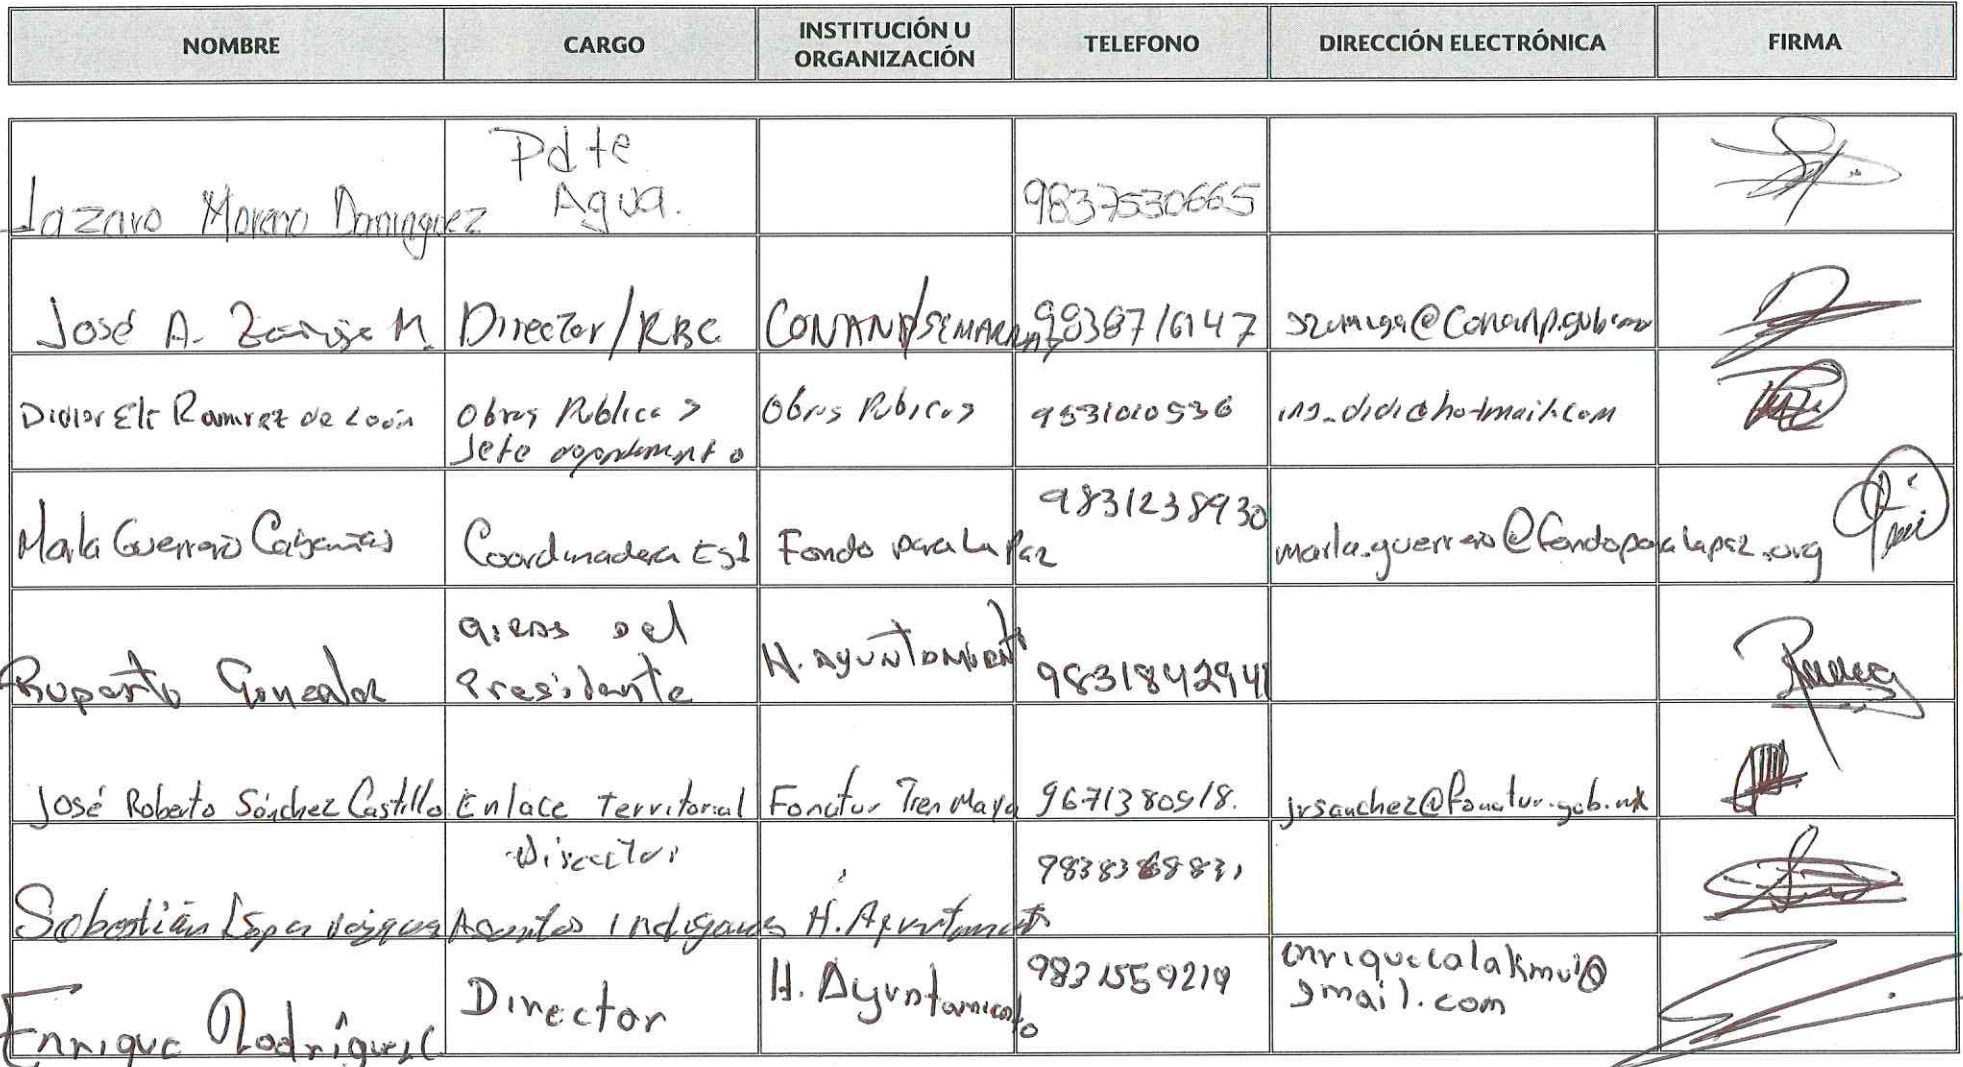 NOMBRE CARGO INSTITUCIÓN U ORGANIZACIÓN TELEFONO DIRECCIÓN ELECTRÓNICA FIRMA
Lazaro Moreno Dominguez Pdte Agua. 9837530665
José A. M. Director/RBC CONANP/SEMARNAT 9838716147
Ramirez de Obras Publicas Jefe Obras Publicas
Marla Guerrero Coordinadora Est Fondo para La Paz 9831238930 marla.guerrero@fondoparalapaz.org
Ruperto Gonzalez del Presidente H. Ayuntamiento
José Roberto Sánchez Castillo Enlace Territorial Fonatur Tren Maya 9671380518. jrsanchez@fonatur.gob.mx
Sebastián Director Asuntos Indigenas H. Ayuntamiento
Enrique Rodríguez C Director H. Ayuntamiento 9831559219 enriquecalakmul@
gmail.com